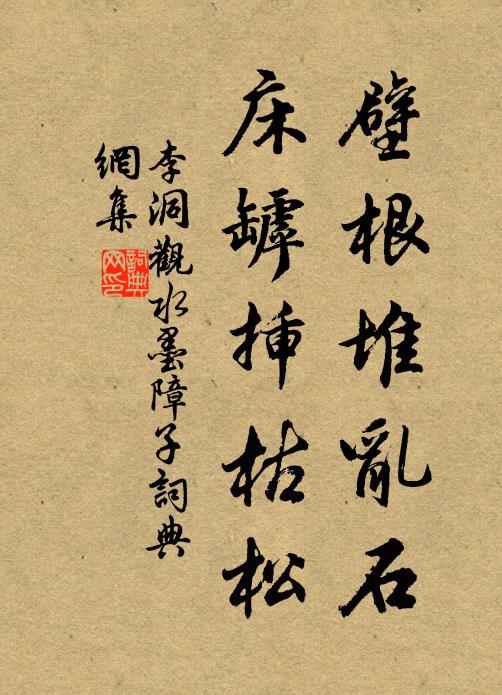 壁根堆亂石
床罅揷枯松
李洞觀水墨障子詞典
網集
詞典
网印